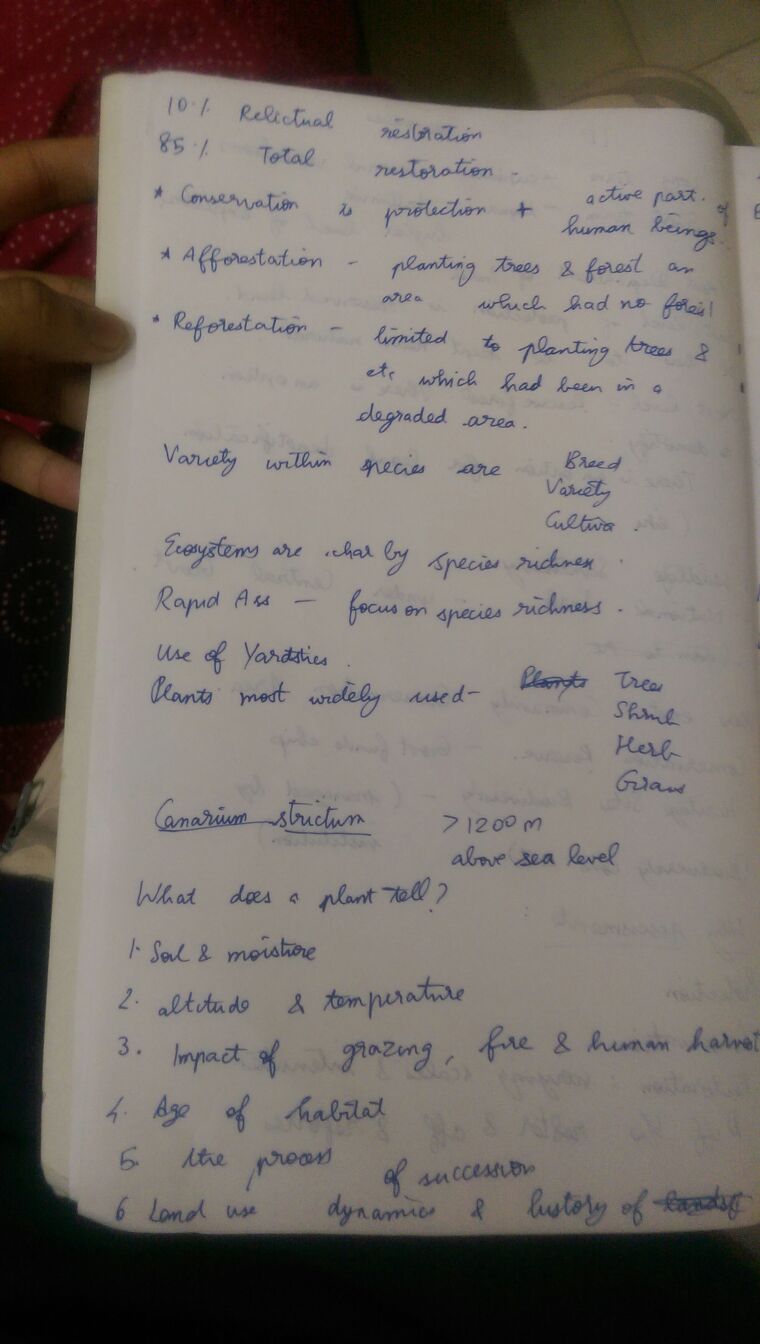 10% Relictual restoration
85% Total restoration.
* Conservation is protection + active part. of
human beings.
* Afforestation - planting trees & forest an
area which had no forest
* Reforestation - limited to planting trees &
etc which had been in a
degraded area.
Variety within species are Breed
Variety
Cultiva.
Ecosystems are char by species richness.
Rapid Ass - focus on species richness.
Use of
Plants most widely used- Trees
Shrub
Herb
Grass
Canarium strictum >1200m
above sea level
What does a plant tell?
1. Soil & moisture
2. altitude & temperature
3. Impact of grazing, fire & human harvest
4. Age of habitat
5. the process of succession
6 Land use dynamics & history of